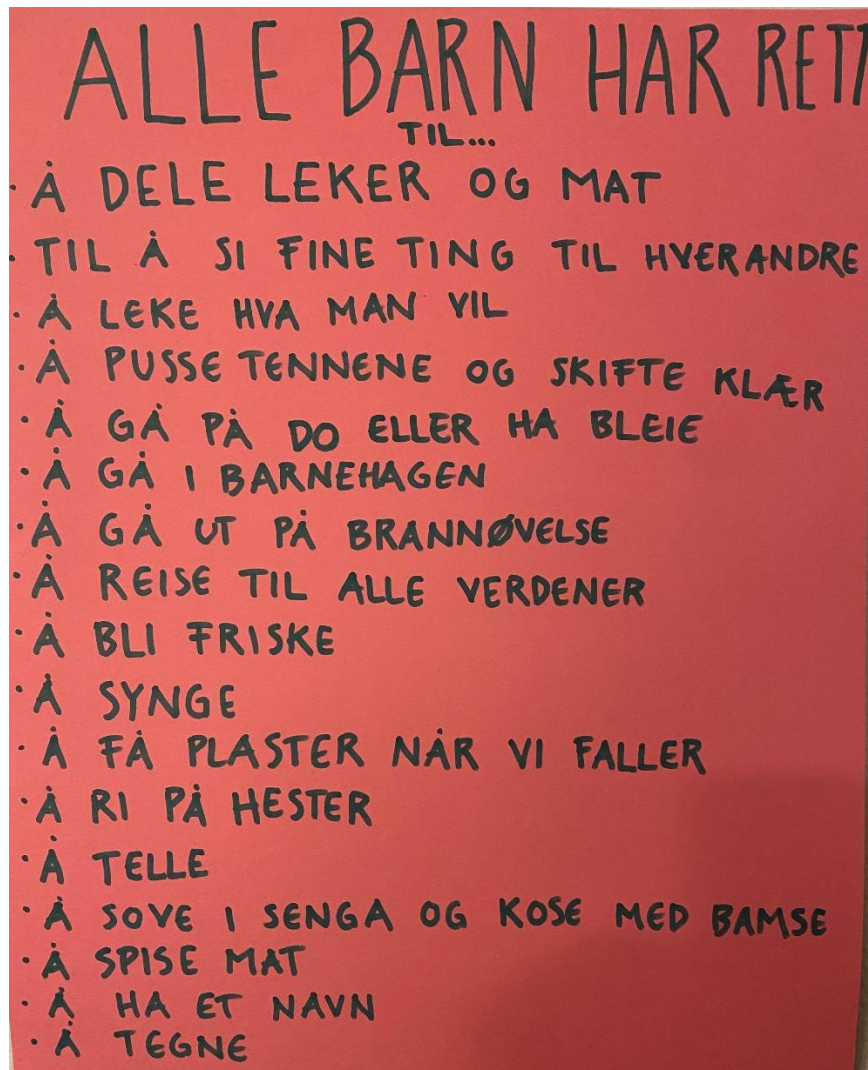 ALLE BARN HAR RETT
TIL...
· Å DELE LEKER OG MAT
· TIL Å SI FINE TING TIL HVERANDRE
· Å LEKE HVA MAN VIL
· Å PUSSE TENNENE OG SKIFTE KLÆR
· Å GÅ PÅ DO ELLER HA BLEIE
· Å GÅ I BARNEHAGEN
· Å GÅ UT PÅ BRANNØVELSE
· Å REISE TIL ALLE VERDENER
· Å BLI FRISKE
· Å SYNGE
· Å FÅ PLASTER NÅR VI FALLER
· Å RI PÅ HESTER
· Å TELLE
· Å SOVE I SENGA OG KOSE MED BAMSE
· Å SPISE MAT
· Å HA ET NAVN
· Å TEGNE